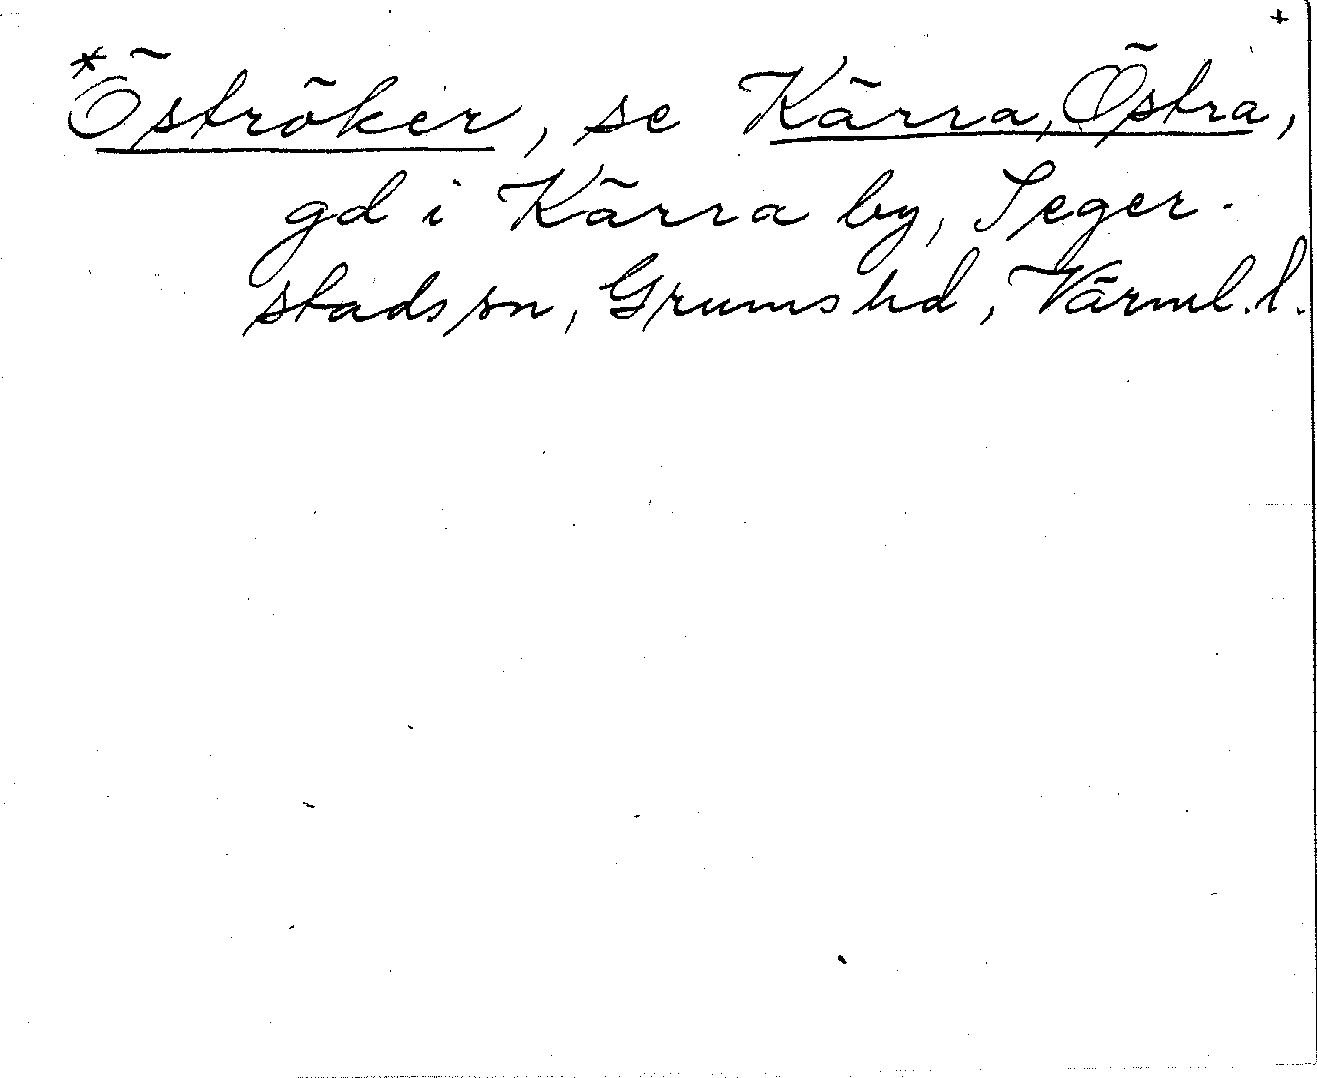 +
*Öströker, se Kärra, Östra,
gd i Kärra by, Seger-
stads sn, Grums hd, Värml. l.